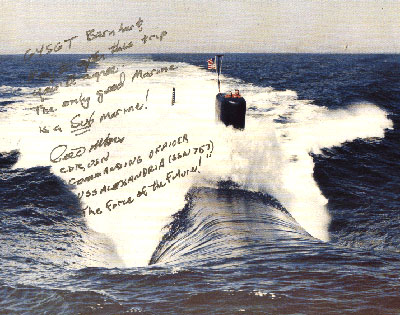 GYSGT Bernhart,
after this trip
you'll agree
The only good Marine
is a Sub Marine!
CDR, USN
COMMANDING OFFICER
USS ALEXANDRIA (SSN 757)
"The Force of the Future!"